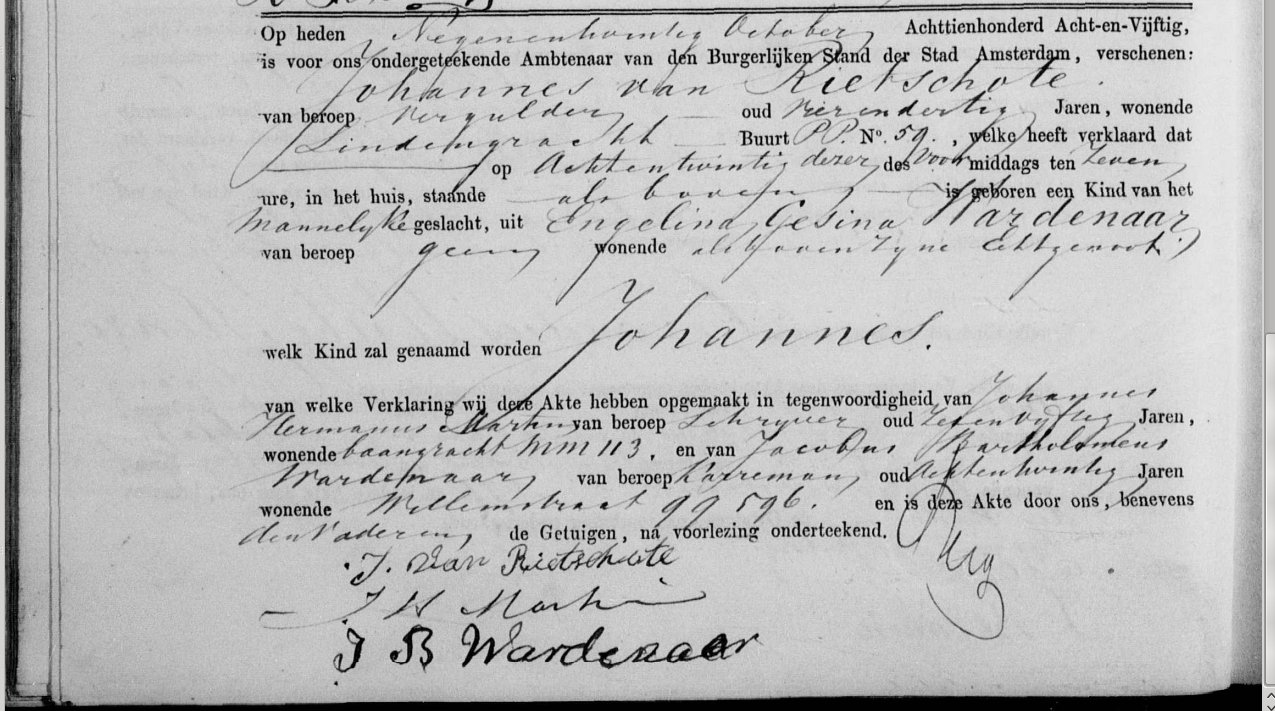 Op heden Negenentwintig October Achttienhonderd Acht-en-Vijftig,
is voor ons ondergeteekende Ambtenaar van den Burgerlijken Stand der Stad Amsterdam, verschenen:
Johannes van Rietschote.
van beroep Vergulder oud Vierendertig Jaren, wonende
Lindengracht Buurt PP. No. 59., welke heeft verklaard dat
op Achtentwintig dezer des Voor middags ten Zeven
ure, in het huis, staande als boven is geboren een Kind van het
Mannelyke geslacht, uit Engelina Gesina Wardenaar
van beroep geen wonende als boven zyne Echtgenoot.
welk Kind zal genaamd worden Johannes.
van welke Verklaring wij deze Akte hebben opgemaakt in tegenwoordigheid van Johannes
Hermanus Martin van beroep Schryver oud Zevenvyftig Jaren,
wonende baangracht MM 113. en van Jacobus Bartholomeus
Wardenaar van beroep Karreman oud Achtentwintig Jaren
wonende Willemstraat 596. en is deze Akte door ons, benevens
den Vader en de Getuigen, na voorlezing onderteekend.
J. van Rietschote
J H Martin
J B Wardenaar